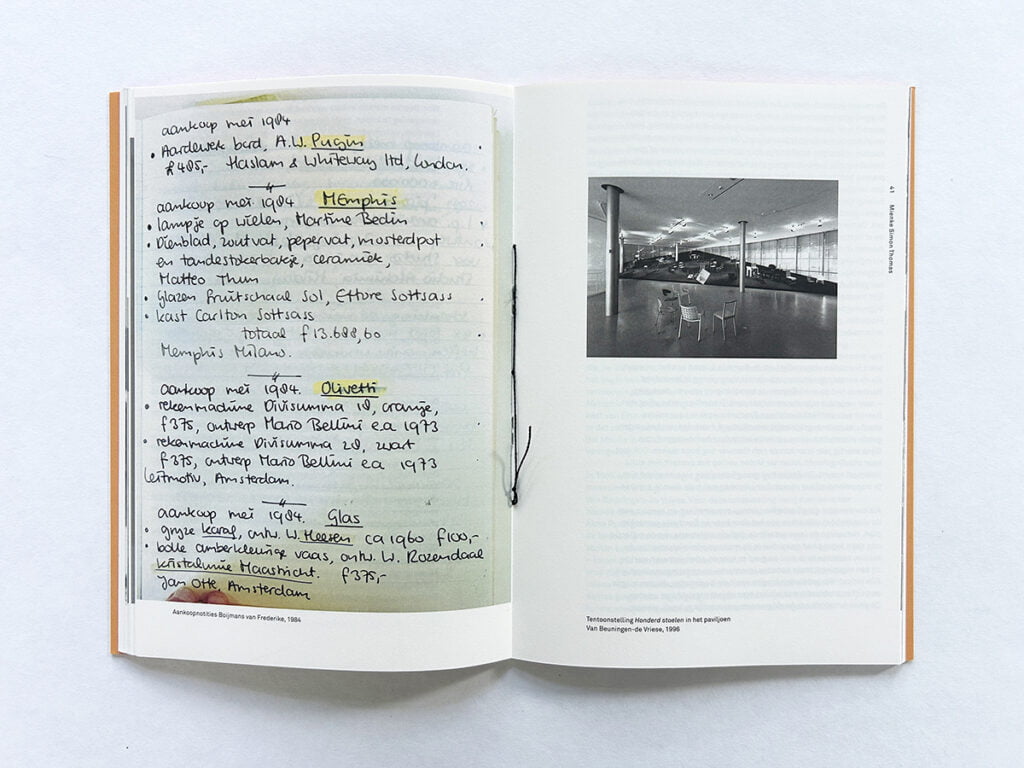 aankoop mei 1984
• Aardewerk bord, A.W. Pugin
£485,- Haslam & Whiteway ltd, London.
aankoop mei 1984 MEmphis
• lampje op wielen, Martine Bedin
• Dienblad, zoutvat, pepervat, mosterdpot
en tandestokerbakje, ceramiek,
Matteo Thun
• Glazen Fruitschaal Sol, Ettore Sottsass
• kast Carlton Sottsass
totaal f 13.688,60
Memphis Milano.
aankoop mei 1984. Olivetti
• rekenmachine Divisumma 18, oranje,
f375, ontwerp Mario Bellini e.a 1973
• rekenmachine Divisumma 28, zwart
f375, ontwerp Mario Bellini e.a 1973
Leitmotiv, Amsterdam.
aankoop mei 1984. Glas
• grijze karaf, ontw. W. Heesen ca 1960 f100,-
• bolle amberkleurige vaas, ontw. W. Rozendaal
Kristalunie Maastricht. f375,-
Jan Otte, Amsterdam
Aankoopnotities Boijmans van Frederike, 1984
41
Mienke Simon Thomas
Tentoonstelling Honderd stoelen in het paviljoen
Van Beuningen-de Vriese, 1996